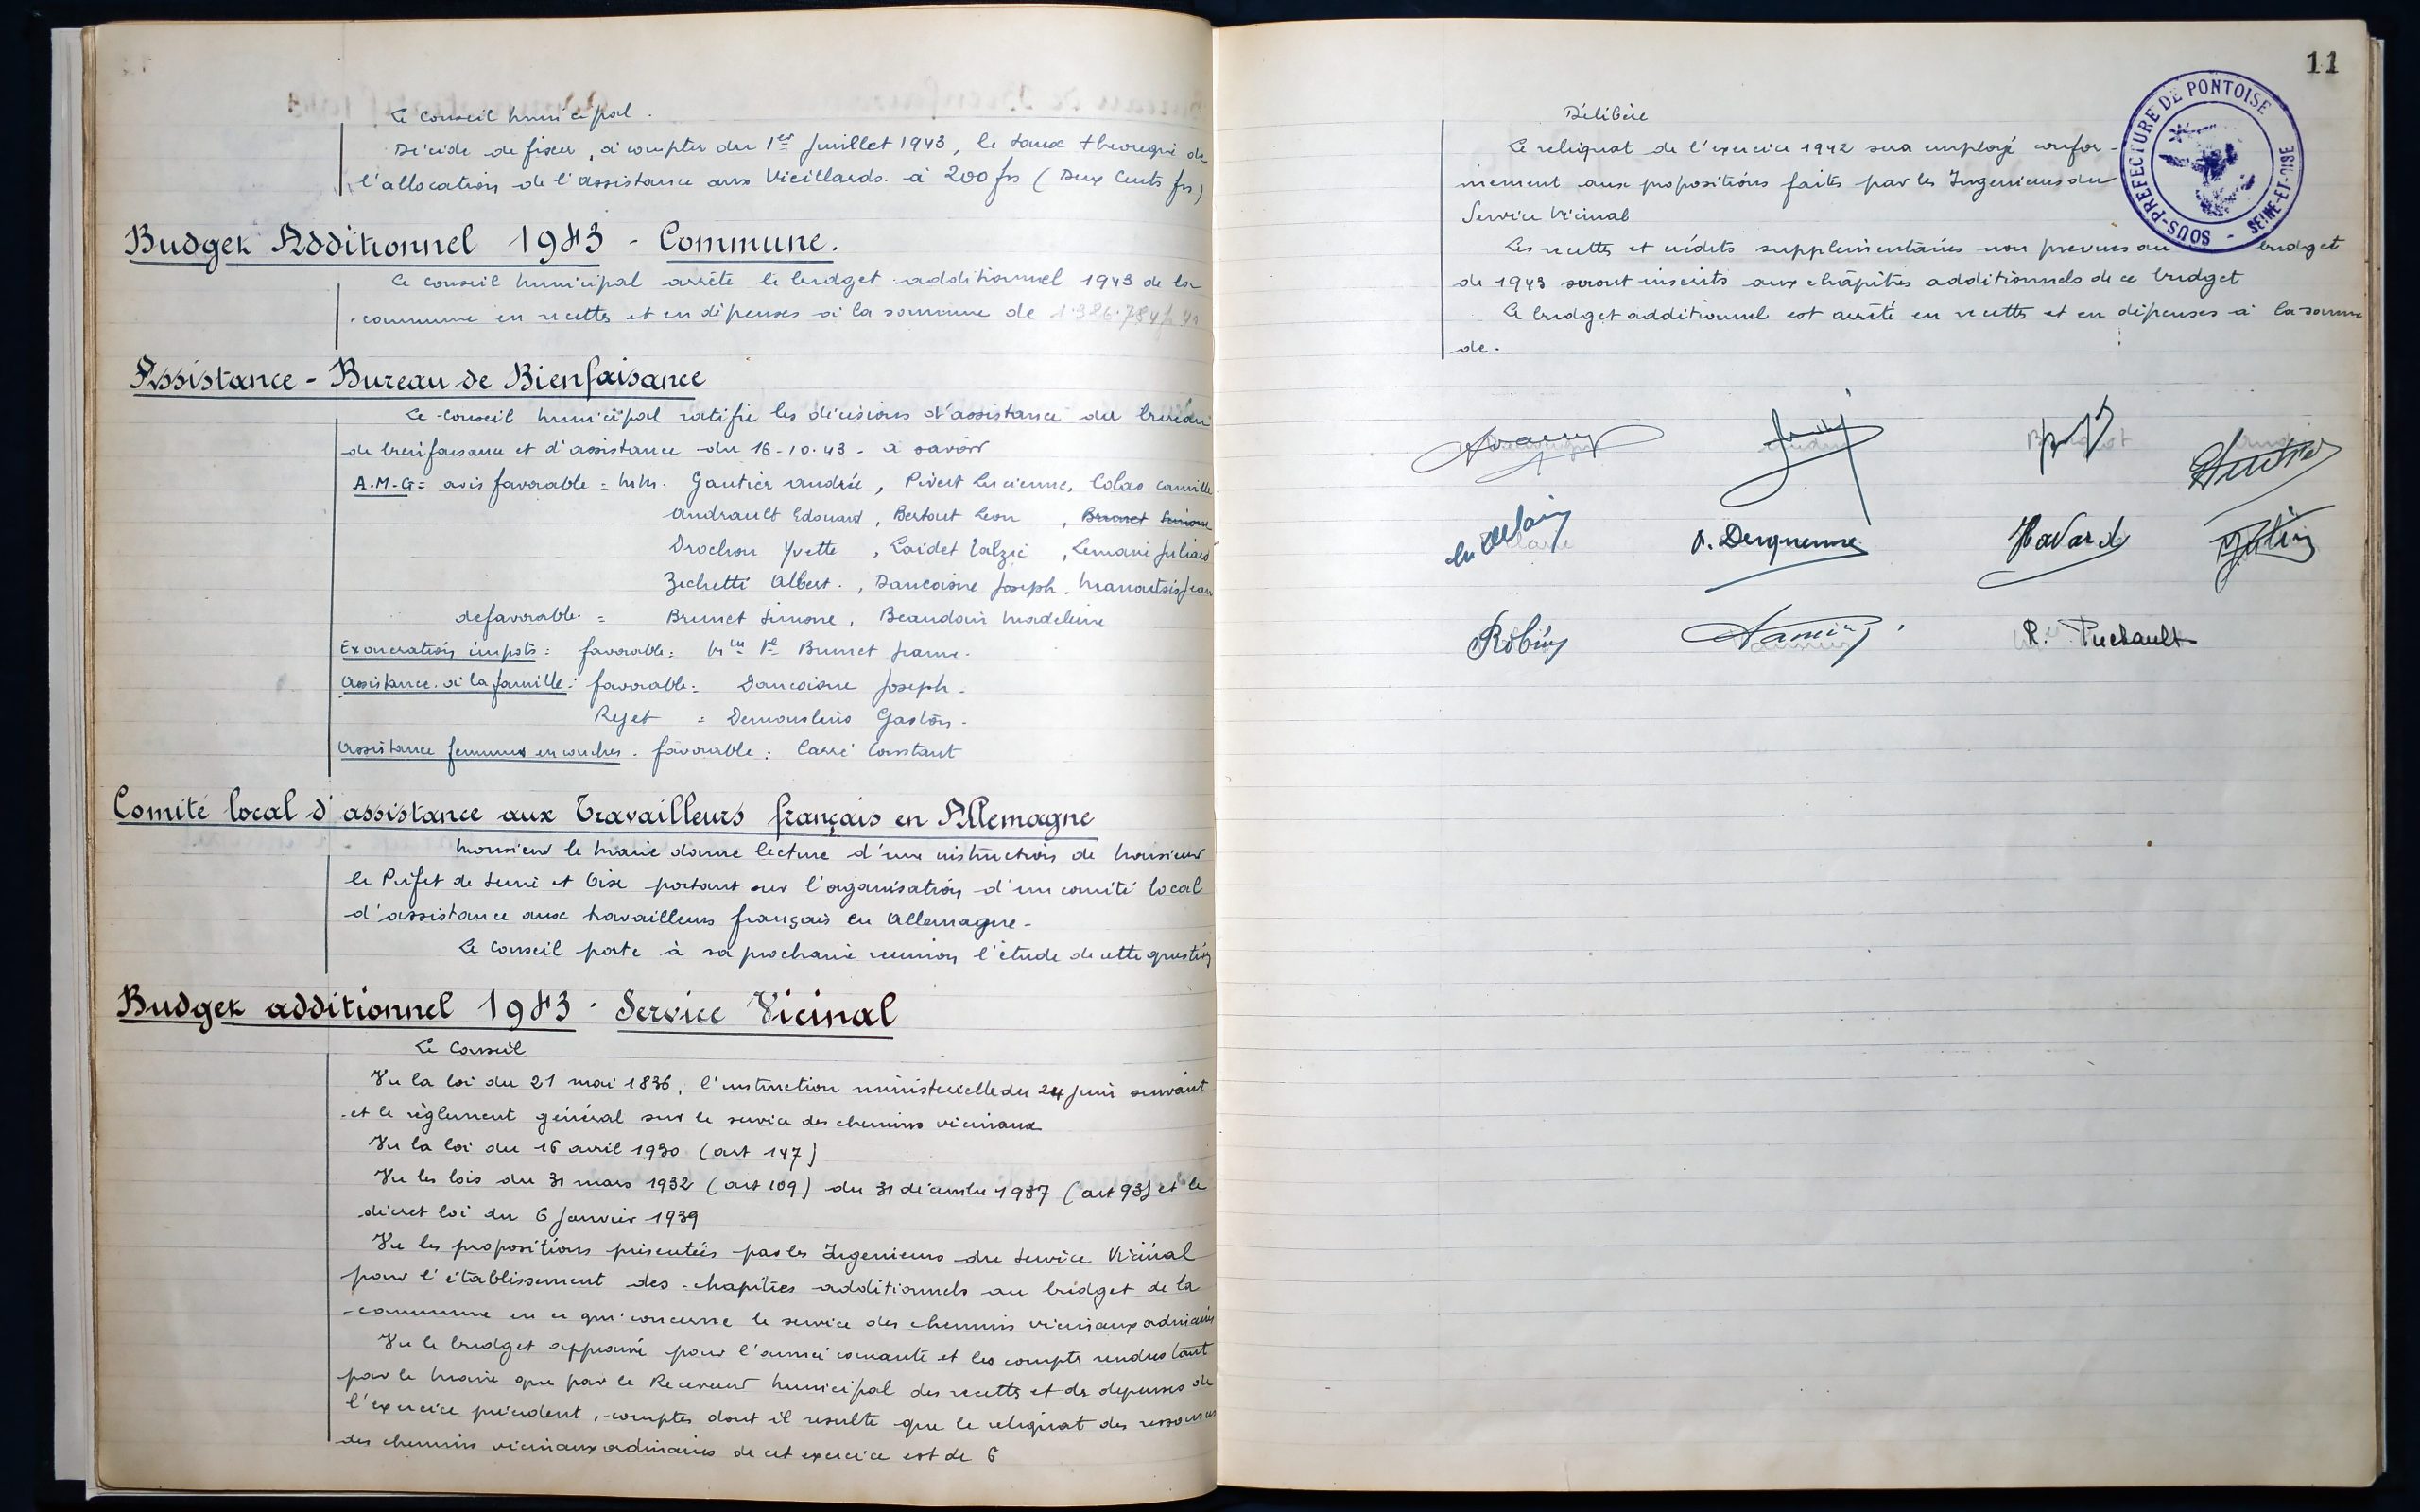 Le Conseil Municipal.
Décide de fixer, à compter du 1er Juillet 1943, le taux théorique de
l'allocation de l'assistance aux Vieillards à 200 frs (Deux Cents frs)
Budget Additionnel 1943 - Commune.
Le Conseil Municipal arrête le budget additionnel 1943 de la
commune en recettes et en dépenses à la somme de
Assistance - Bureau de Bienfaisance
Le Conseil Municipal ratifie les décisions d'assistance du bureau
de bienfaisance et d'assistance du 16.10.43 - à savoir
A.M.G = avis favorable = MM. Gautier Andrée, Pivert Lucienne, Colas Camille
Andrault Edouard, Bertout Leon, Brunet Simone
Drochon Yvette, Laidet, Lemarie
Zechetti Albert., Dancoisne Joseph.
defavorable = Brunet Simone, Beaudoin Madeleine
Exoneration impots : favorable : Mme Ve Brunet Jeanne.
Assistance à la famille : favorable = Dancoisne Joseph.
Rejet = Demouslins Gaston.
Assistance femmes en couches. favorable : Carré Constant
Comité local d'assistance aux Travailleurs français en Allemagne
Monsieur le Maire donne lecture d'une instruction de Monsieur
le Préfet de Seine et Oise portant sur l'organisation d'un comité local
d'assistance aux travailleurs français en Allemagne -
Le Conseil porte à sa prochaine reunion l'étude de cette question
Budget additionnel 1943 - Service Vicinal
Le Conseil
Vu la loi du 21 mai 1836, l'instruction ministerielle du 24 juin suivant
et le règlement général sur le service des chemins vicinaux
Vu la loi du 16 avril 1930 (art 147)
Vu les lois du 31 mars 1932 (art 109) du 31 décembre 1937 (art 93) et le
décret loi du 6 Janvier 1939
Vu les propositions présentées par les Ingenieurs du Service Vicinal
pour l'établissement des chapitres additionnels au budget de la
commune en ce qui concerne le service des chemins vicinaux ordinaires
Vu le budget approuvé pour l'année courante et les comptes rendus tant
par le Maire que par le Receveur Municipal des recettes et des depenses de
l'exercice précédent, comptes dont il resulte que le reliquat des ressources
des chemins vicinaux ordinaires de cet exercice est de 6
11
SOUS-PRÉFECTURE DE PONTOISE
SEINE-ET-OISE
Délibère
Le reliquat de l'exercice 1942 sera employé confor-
mément aux propositions faites par les Ingenieurs du
Service Vicinal
Les recettes et crédits supplémentaires non prevues au budget
de 1943 seront inscrits aux chapitres additionnels de ce budget
Le budget additionnel est arrêté en recettes et en dépenses à la somme
de.
Derquenne
Havard
Robin
R. Puchault